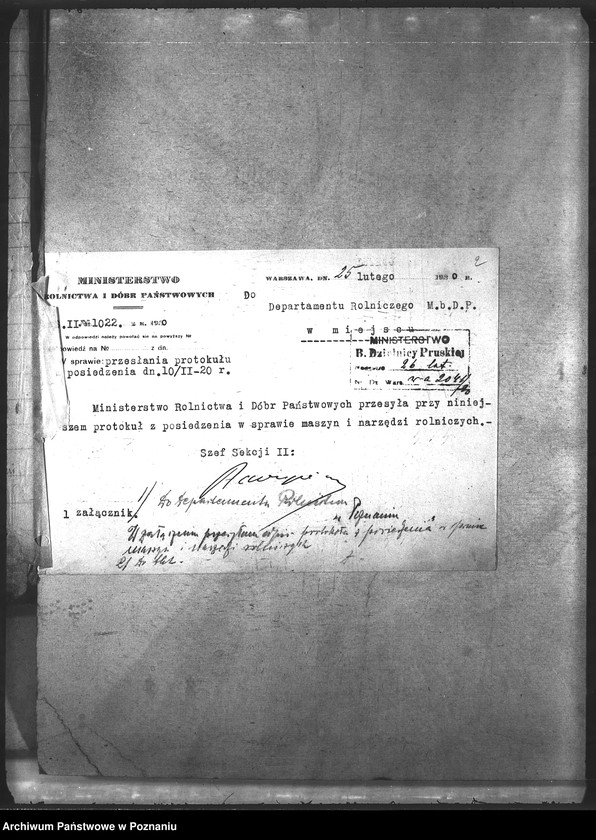 2
MINISTERSTWO
ROLNICTWA I DÓBR PAŃSTWOWYCH
WARSZAWA, DN. 25 lutego 1920 R.
Do
Departamentu Rolniczego M.b.D.P.
w miejscu
II-№1022. Z R. 1920
W odpowiedzi należy powołać się na powyższy №
owiedź na № z dn.
W sprawie: przesłania protokułu
posiedzenia dn.10/II-20 r.
MINISTERSTWO
B. Dzielnicy Pruskiej
26 lut.
Ministerstwo Rolnictwa i Dóbr Państwowych przesyła przy niniej-
szem protokuł z posiedzenia w sprawie maszyn i narzędzi rolniczych.-
Szef Sekcji II:
1 załącznik.
1/ Do Departamentu Rolnictwa
w Poznaniu
W załączeniu przesyłam odpis protokołu z posiedzenia w sprawie
maszyn i narzędzi rolniczych
2/
Archiwum Państwowe w Poznaniu